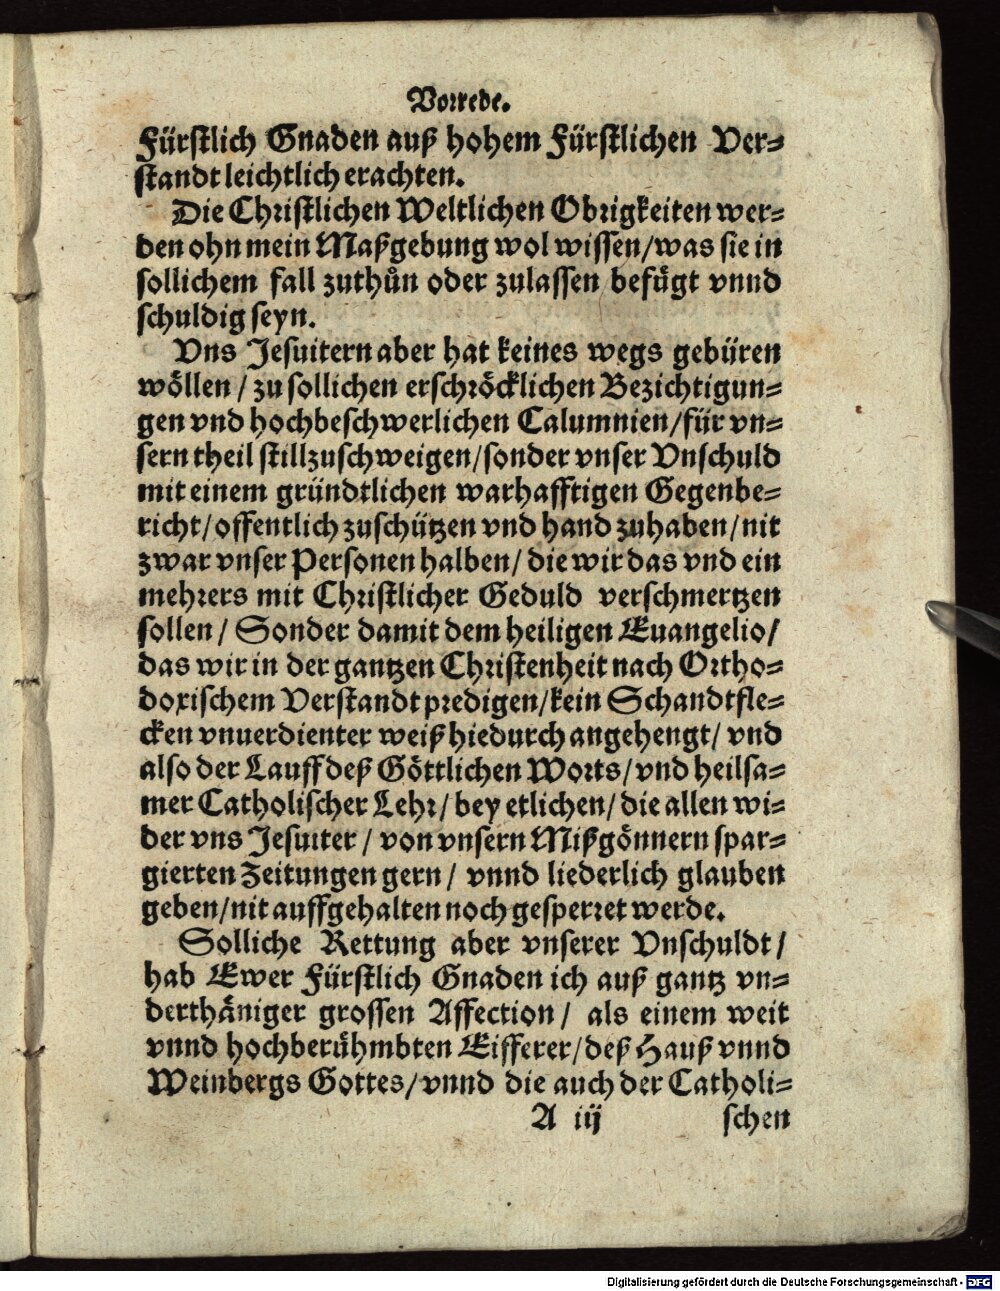 Vorrede.
Fürstlich Gnaden auß hohem Fürstlichen Ver⸗
standt leichtlich erachten.
Die Christlichen Weltlichen Obrigkeiten wer⸗
den ohn mein Maßgebung wol wissen/was sie in
sollichem fall zuthůn oder zulassen befůgt vnnd
schuldig seyn.
Vns Jesuitern aber hat keines wegs gebüren
wöllen / zu sollichen erschröcklichen Bezichtigun⸗
gen vnd hochbeschwerlichen Calumnien/für vn⸗
sern theil stillzuschweigen/sonder vnser Vnschuld
mit einem gründtlichen warhafftigen Gegenbe⸗
richt/offentlich zuschützen vnd hand zuhaben/nit
zwar vnser Personen halben/ die wir das vnd ein
mehrers mit Christlicher Geduld verschmertzen
sollen/ Sonder damit dem heiligen Euangelio/
das wir in der gantzen Christenheit nach Ortho⸗
doxischem Verstandt predigen/kein Schandtfle⸗
cken vnuerdienter weiß hiedurch angehengt/ vnd
also der Lauff deß Göttlichen Worts/vnd heilsa⸗
mer Catholischer Lehr/bey etlichen/die allen wi⸗
der vns Jesuiter / von vnsern Mißgönnern spar⸗
gierten Zeitungen gern/ vnnd liederlich glauben
geben/nit auffgehalten noch gesperret werde.
Solliche Rettung aber vnserer Vnschuldt/
hab Ewer Fürstlich Gnaden ich auß gantz vn⸗
derthäniger grossen Affection/ als einem weit
vnnd hochberühmbten Eifferer/deß Hauß vnnd
Weinbergs Gottes/vnnd die auch der Catholi⸗
A iij schen
Digitalisierung gefördert durch die Deutsche Forschungsgemeinschaft - DFG